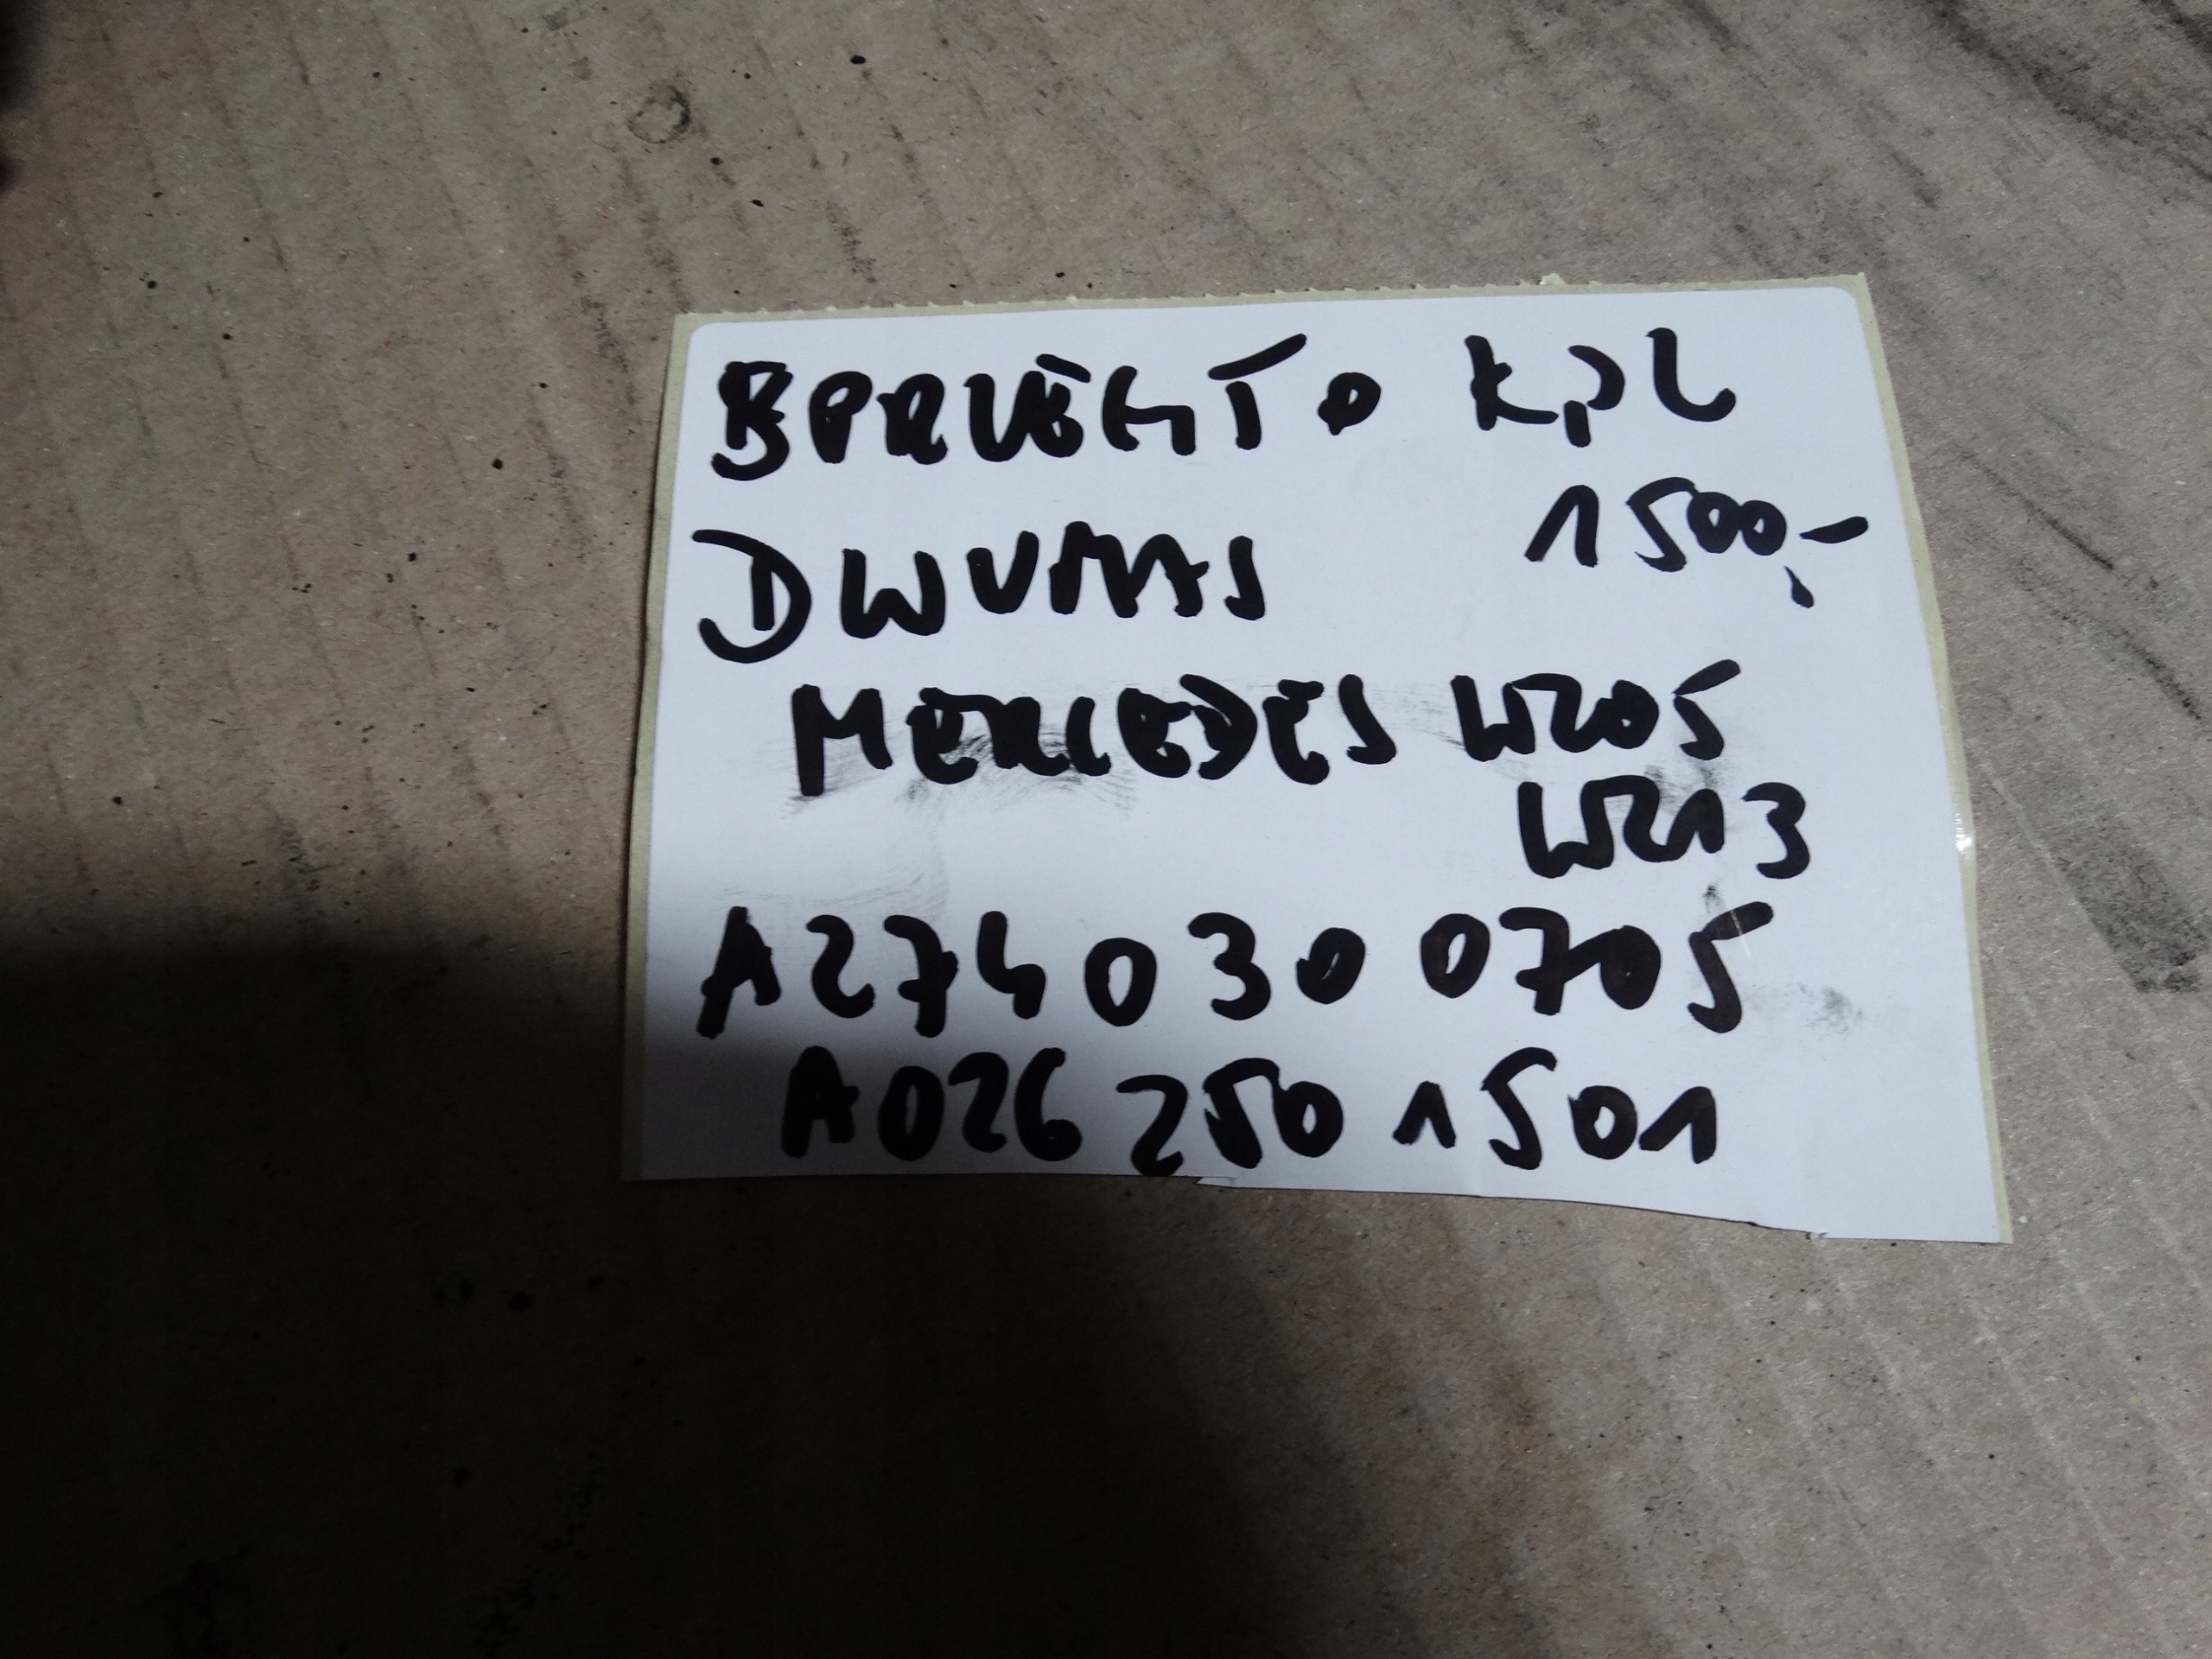 SPRZĘGŁO KPL
1500,-
DWUMAS
MERCEDES W205
W213
A274 030 0705
A026 250 1501